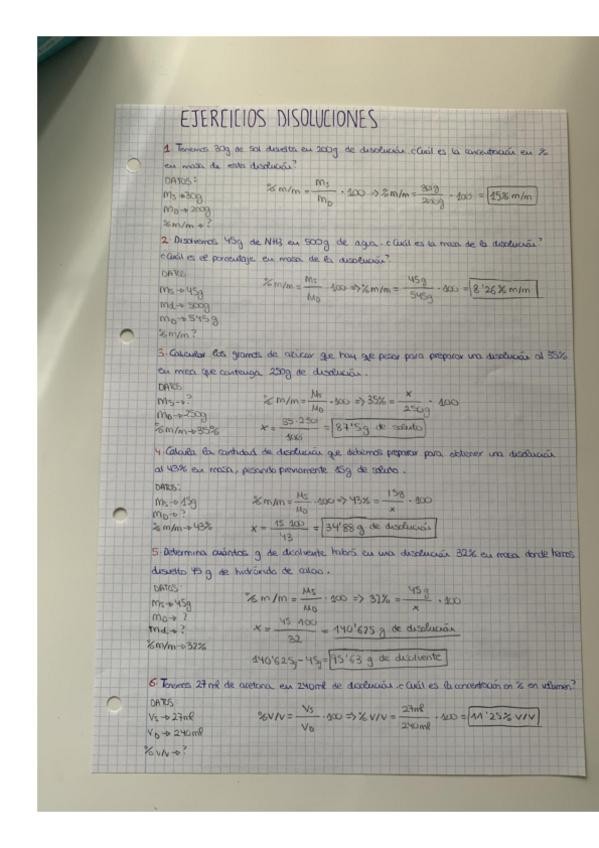 EJERCICIOS DISOLUCIONES
1. Tenemos 30g de sal disuelta en 200g de disolución. ¿Cuál es la concentración en %
en masa de esta disolución?
DATOS:
ms→30g
mD→200g
%m/m→?
%m/m = ms/mD · 100 => %m/m = 30g/200g · 100 = 15% m/m
2. Disolvemos 45g de NH3 en 500g de agua. ¿Cuál es la masa de la disolución?
¿Cuál es el porcentaje en masa de la disolución?
DATOS
ms→45g
md→500g
mD→545g
%m/m?
%m/m = ms/mD · 100 => %m/m = 45g/545g · 100 = 8'26% m/m
3. Calcular los gramos de azúcar que hay que pesar para preparar una disolución al 35%
en masa que contenga 250g de disolución.
DATOS
ms→?
mD→250g
%m/m→35%
%m/m = ms/mD · 100 => 35% = x/250g · 100
x = 35·250/100 = 87'5g de soluto
4. Calcula la cantidad de disolución que debemos preparar para obtener una disolución
al 43% en masa, pesando previamente 15g de soluto.
DATOS:
ms→15g
mD→?
%m/m→43%
%m/m = ms/mD · 100 => 43% = 15g/x · 100
x = 15·100/43 = 34'88g de disolución
5. Determina cuántos g de disolvente habrá en una disolución 32% en masa donde hemos
disuelto 45g de hidróxido de calcio.
DATOS:
ms→45g
mD→?
md→?
%m/m→32%
%m/m = ms/mD · 100 => 32% = 45g/x · 100
x = 45·100/32 = 140'625g de disolución
140'625g-45g= 95'63 g de disolvente
6. Tenemos 27ml de acetona en 240ml de disolución. ¿Cuál es la concentración en % en volumen?
DATOS
Vs→27ml
VD→240ml
%V/V→?
%V/V = Vs/VD · 100 => %V/V = 27ml/240ml · 100 = 11'25% V/V